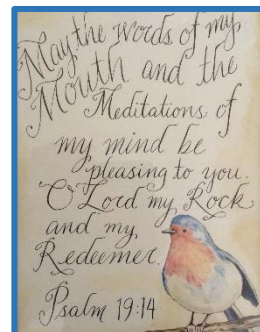 May the words of my
Mouth and the
Meditations of
my mind be
pleasing to you.
O Lord my Rock
and my
Redeemer.
Psalm 19:14